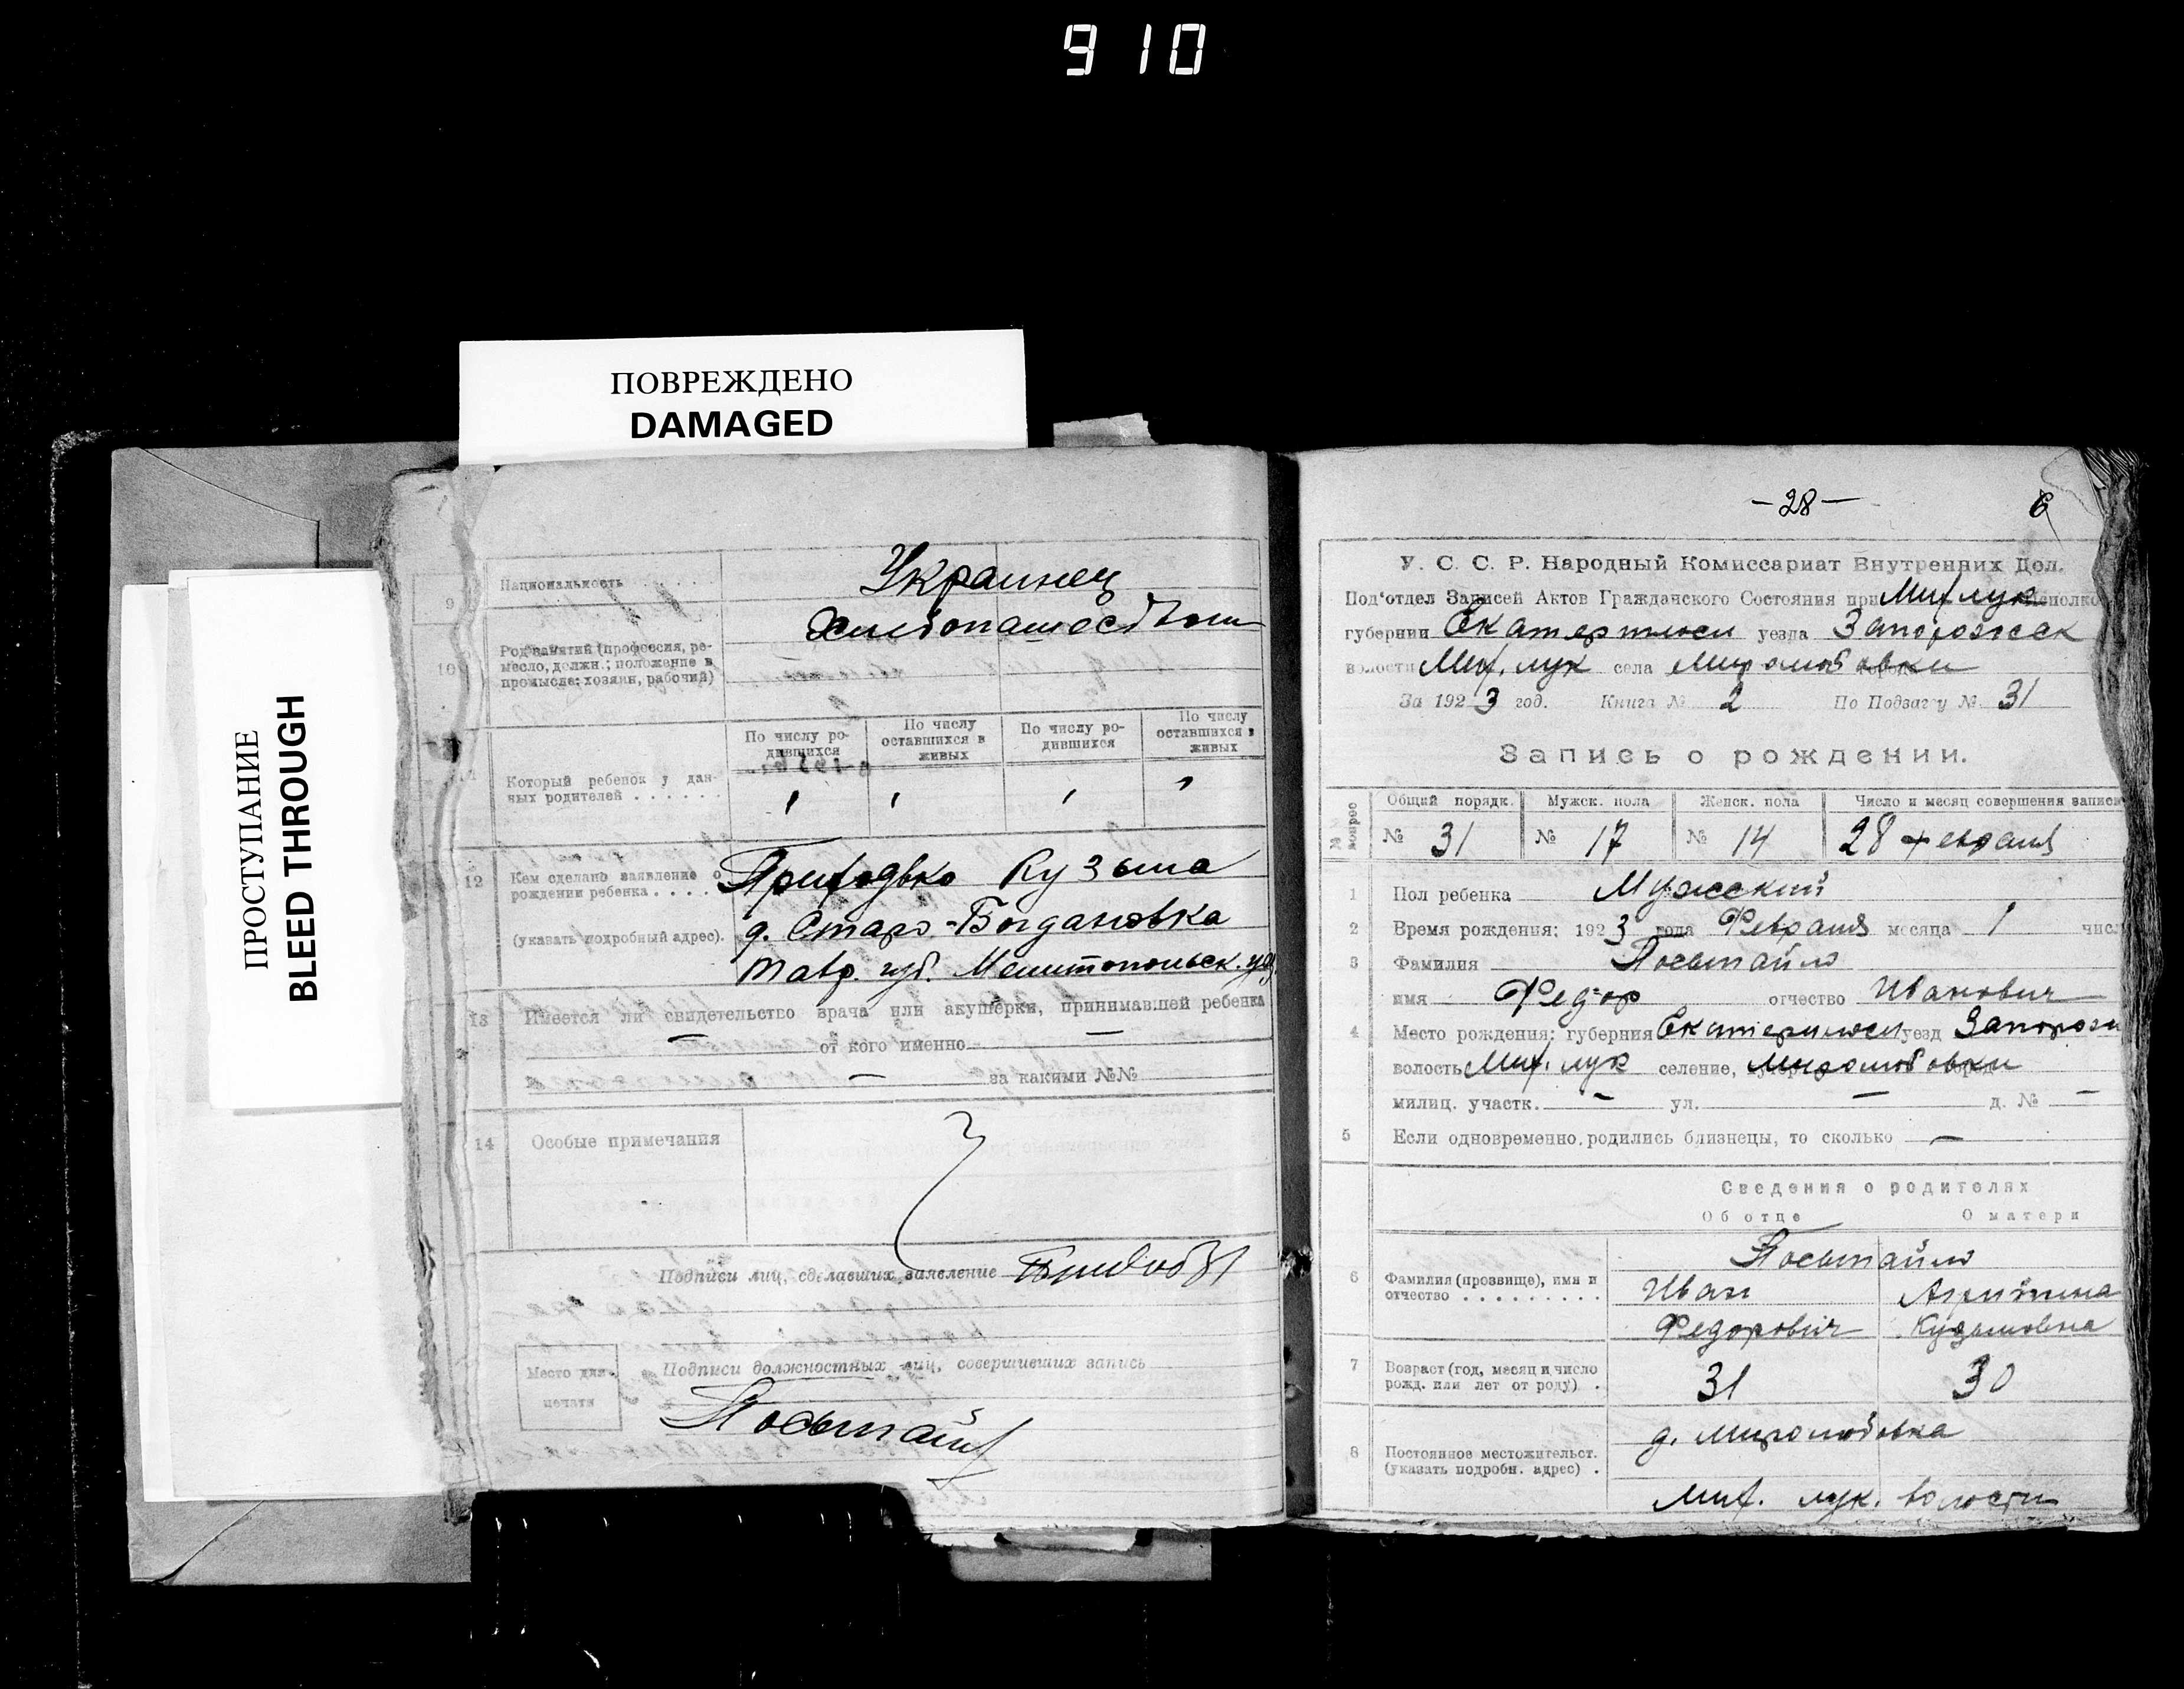 910
ПОВРЕЖДЕНО
DAMAGED
ПРОСТУПАНИЕ
BLEED THROUGH
9 Национальность . . . . Украинец
Хлебопашеством
10 Род занятий (профессия, ре-
месло, должн.; положение в
промысле: хозяин, рабочий)
По числу ро-
дившихся
По числу
оставшихся в
живых
По числу ро-
дившихся
По числу
оставшихся в
живых
Который ребенок у дан-
ных родителей . . . . . . .
12 Кем сделано заявление о
рождении ребенка . . . .
(указать подробный адрес).
Приходько Кузьма
д. Старо-Богдановка
Тавр. губ. Мелитопольск. уез
13 Имеется ли свидетельство врача или акушерки, принимавшей ребенка
— от кого именно —
— за какими №№
14 Особые примечания
Подписи лиц, сделавших заявление
Место для
печати
Подписи должностных лиц, совершивших запись
-28- 6
У. С. С. Р. Народный Комиссариат Внутренних Дел.
Под'отдел Записей Актов Гражданского Состояния при Мих лук
губернии уезда Запорожск
волости Мих. лук села Миролюбовки
За 1923 год. Книга № 2 По Подзагу № 31
Запись о рождении.
Общий порядк. Мужск. пола Женск. пола Число и месяц совершения записи
№ 31 № 17 № 14 28 февраля
1 Пол ребенка Мужский
2 Время рождения: 1923 года Февраля месяца 1 числ
3 Фамилия
имя Федор отчество Иванович
4 Место рождения: губерния уезд
волость Мих. лук селение, Миролюбовки
милиц. участк. — ул. — д. № —
5 Если одновременно родились близнецы, то сколько —
Сведения о родителях
Об отце О матери
6 Фамилия (прозвище), имя и
отчество . . . . . . . . .
Иван
Федорович Кузьмовна
7 Возраст (год, месяц и число
рожд. или лет от роду) .
31 30
8 Постоянное местожительст.
(указать подробн. адрес) .
д. Миролюбовка
Мих. лук. волости